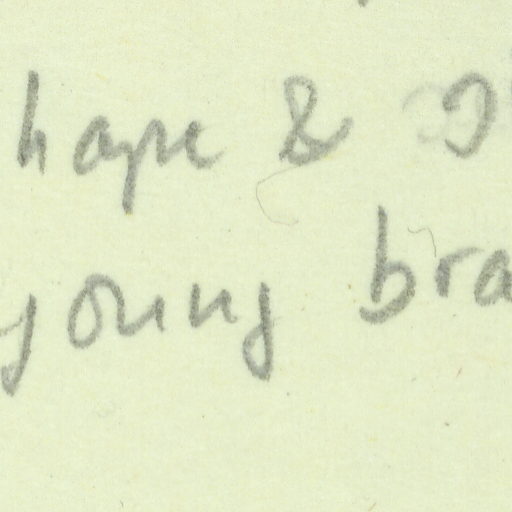 hape &
young bra